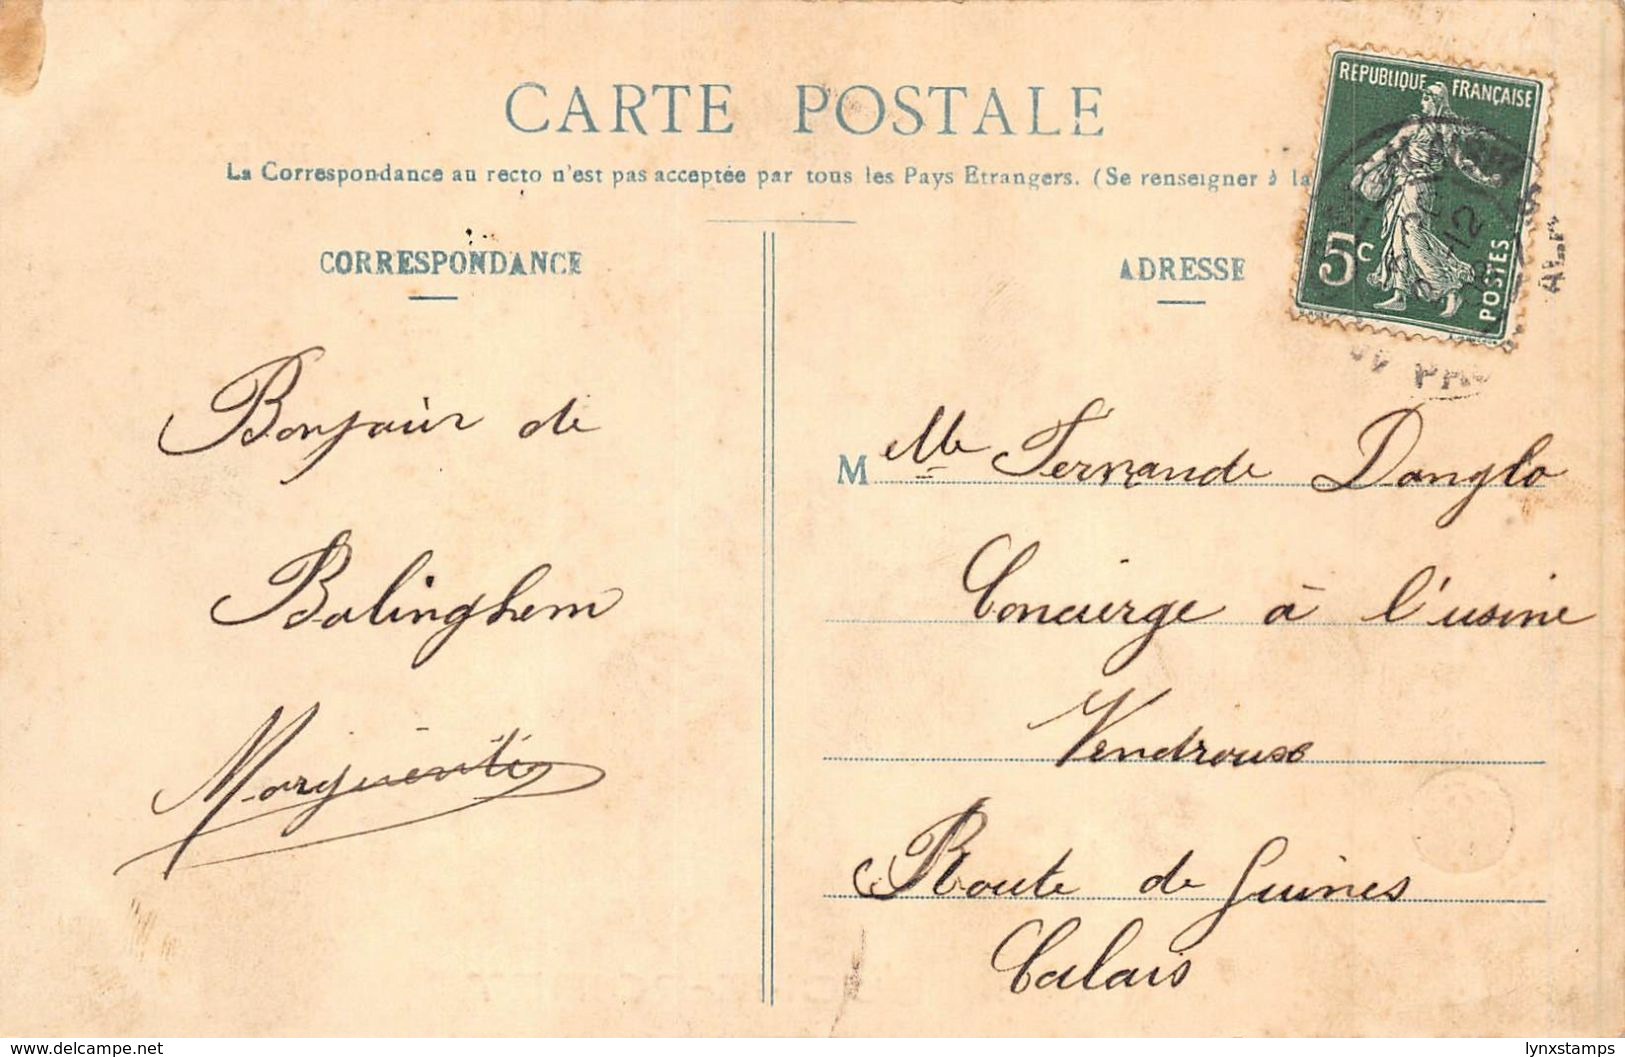 CARTE POSTALE
La Correspondance au recto n'est pas acceptée par tous les Pays Etrangers. (Se renseigner à la
CORRESPONDANCE
ADRESSE
REPUBLIQUE FRANÇAISE
5c
POSTES
Bonjour de
Balinghem
Marguerite
M elle Fernande Danglo
Concierge à l'usine
Vendrouse
Route de Guines
Calais
delcampe.net
lynxstamps